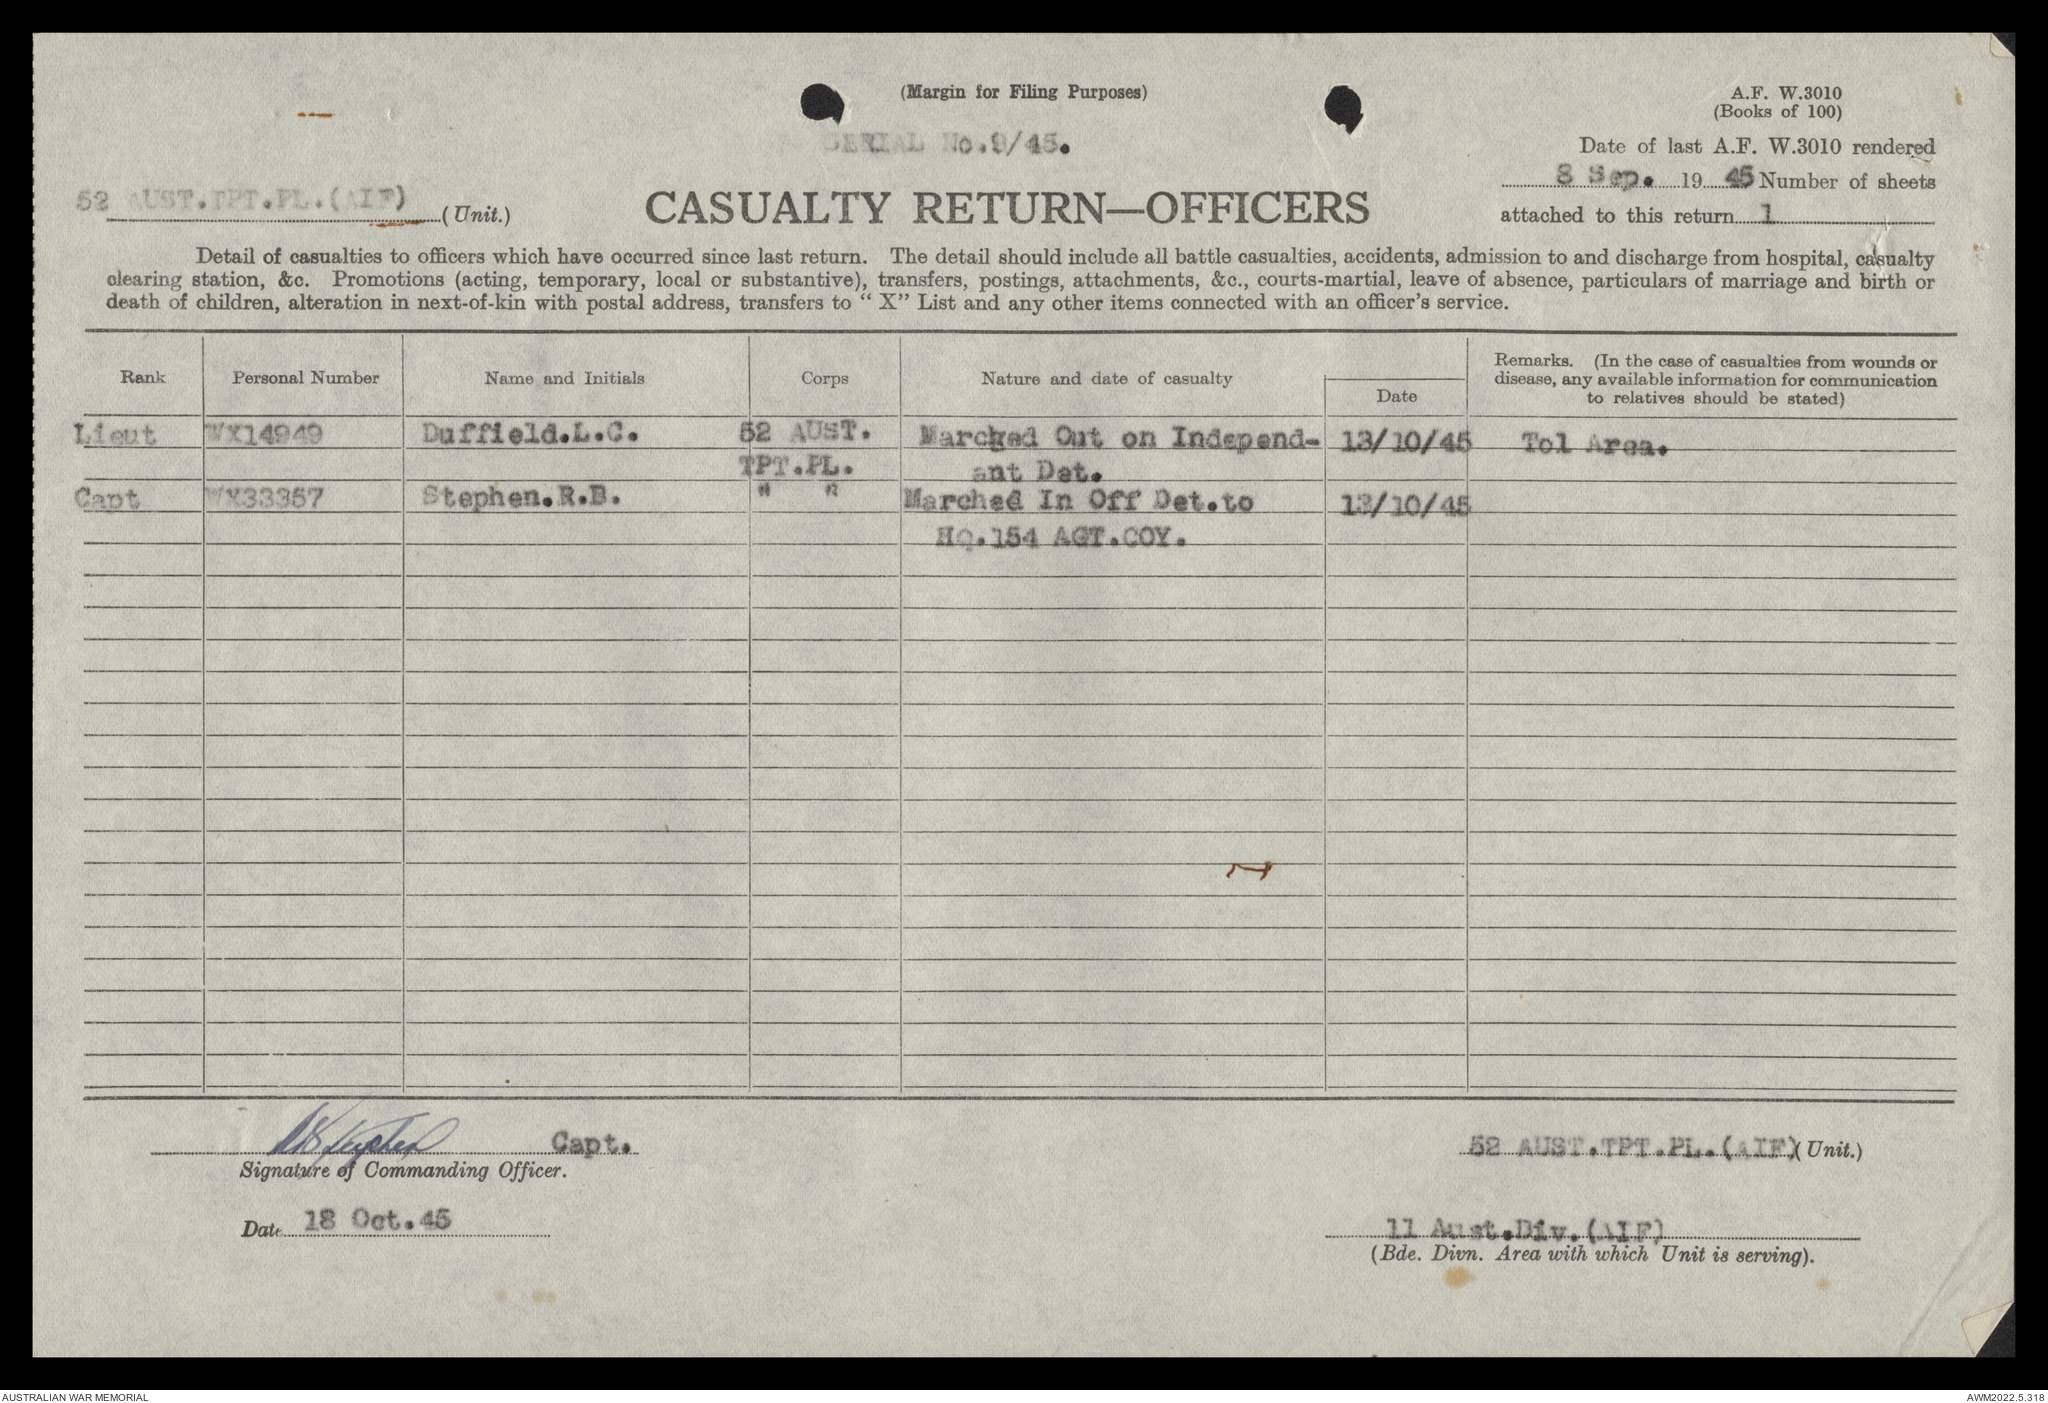 (Margin for Filing Purposes)
A.F. W.3010
(Books of 100)
SERIAL No.9/45.
Date of last A.F. W.3010 rendered
8 Sep. 19 45 Number of sheets
attached to this return 1
52 AUST.TPT.PL.(AIF) (Unit.)
CASUALTY RETURN—OFFICERS
Detail of casualties to officers which have occurred since last return. The detail should include all battle casualties, accidents, admission to and discharge from hospital, casualty
clearing station, &c. Promotions (acting, temporary, local or substantive), transfers, postings, attachments, &c., courts-martial, leave of absence, particulars of marriage and birth or
death of children, alteration in next-of-kin with postal address, transfers to “ X” List and any other items connected with an officer's service.
Rank Personal Number Name and Initials Corps Nature and date of casualty Date Remarks. (In the case of casualties from wounds or
disease, any available information for communication
to relatives should be stated)
Lieut WX14949 Duffield.L.C. 52 AUST. Marched Out on Independ- 13/10/45 Tol Area.
TPT.PL. ant Det.
Capt WX33357 Stephen.R.B. " " Marched In Off Det.to 13/10/45
HQ.154 AGT.COY.
RB Stephen Capt.
Signature of Commanding Officer.
52 AUST.TPT.PL.(AIF) (Unit.)
Date 18 Oct.45
11 Aust.Div.(AIF)
(Bde. Divn. Area with which Unit is serving).
AUSTRALIAN WAR MEMORIAL
AWM2022.5.318